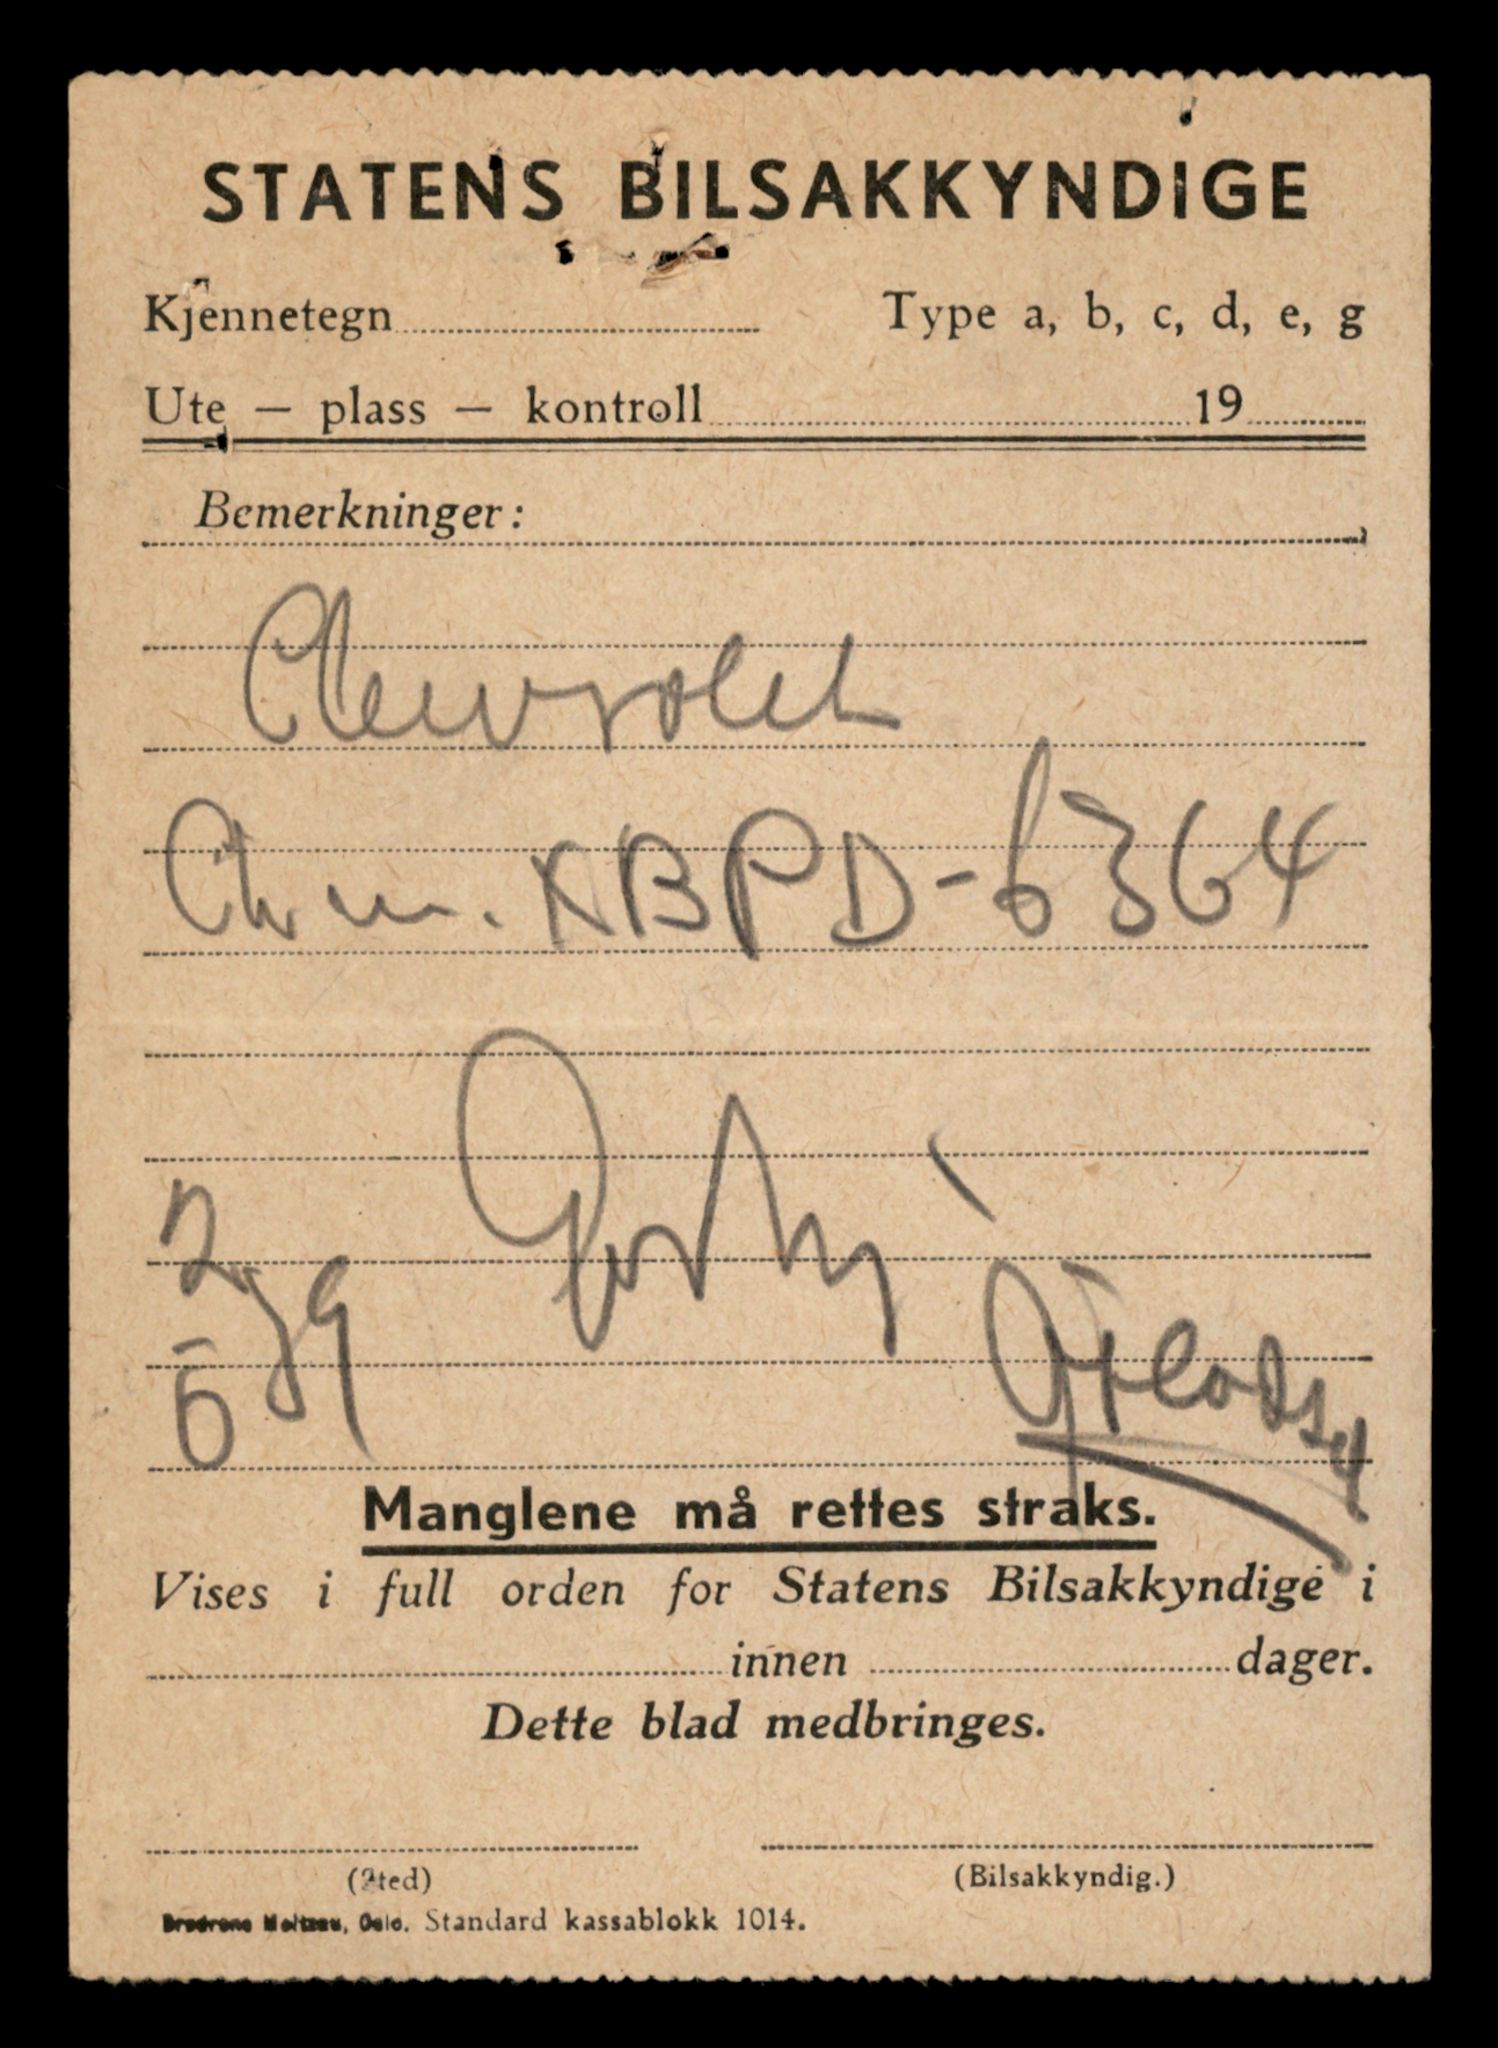 STATENS BILSAKKYNDIGE
Kjennetegn Type a, b, c, d, e, g
Ute — plass — kontroll 19
Bemerkninger:
Chevrolet
Ch. nr. KBPD-6364
2/6 39
Manglene må rettes straks.
Vises i full orden for Statens Bilsakkyndige i
innen dager.
Dette blad medbringes.
(Sted) (Bilsakkyndig.)
Brødrene Meltzau, Oslo. Standard kassablokk 1014.